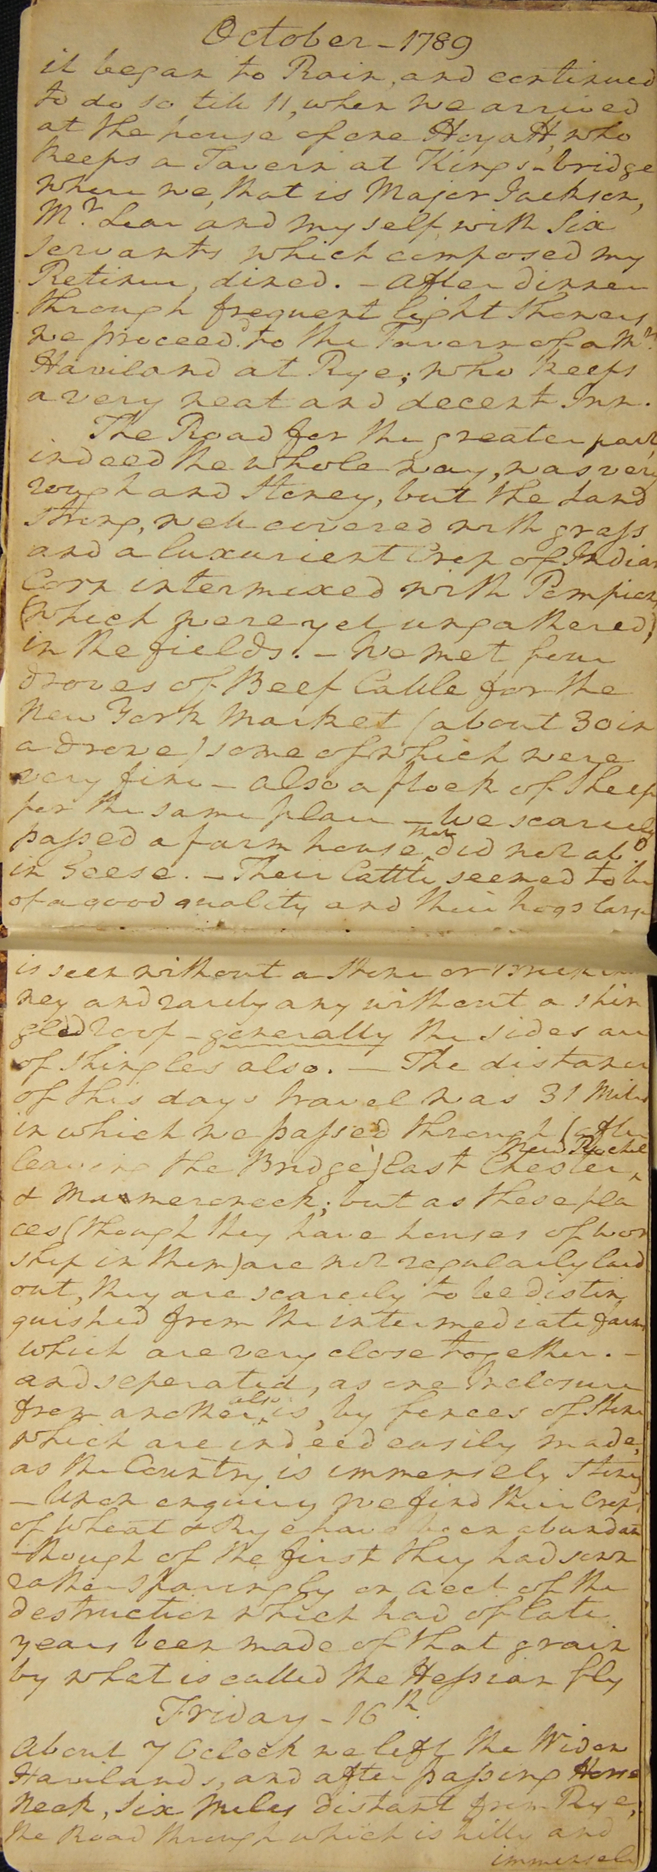 October - 1789
it began to Rain, and continued
to do so till 11, when we arrived
at the house of one Hoyatt, who
keeps a Tavern at Kings-bridge
where we, that is Major Jackson,
Mr. Lear and myself, with Six
Servants which composed my
Retinue, dined. - After dinner
through frequent light Showers
we proceed'd to the Tavern of a Mrs.
Haviland at Rye; who keeps
a very neat and decent Inn.
The Road for the greater part,
indeed the whole way, was very
rough and Stoney, but the Land
strong, well covered with grass
and a luxurient Crop of Indian
Corn intermixed with Pompions
(which were yet ungathered)
in the fields. - We met four
droves of Beef Cattle for the
New York Market (about 30 in
a drove) some of which were
very fine - also a flock of Sheep
for the same place - We scarcely
passed a farm house that did not abd.
in Geese. - Their Cattle seemed to be
of a good quality and their hogs large
is seen without a Stone or Brick
ney and rarely any without a shin
gled roof - generally the sides are
of shingles also. - The distance
of this days travel was 31 Miles
in which we passed through (after
leaving the Bridge) East Chester, New Rochel
& Mammerneck; but as these pla
ces (though they have houses of wor
ship in them) are not regularly laid
out, they are scarcely to be distin
guished from the intermediate farms
which are very close together. -
and seperated, as one Inclosure
from another also is, by fences of Stone
which are indeed easily made,
as the Country is immensely Stony
- Upon enquiry we find their Crops
of Wheat & Rye have been abundant
- though of the first they had sown
rather sparingly on acct. of the
destruction which had of late
years been made of that grain
by what is called the Hessian fly
Friday - 16th.
About 7 Oclock we left the Widow
Havilands, and after passing Horse
Neck, Six Miles distant from Rye,
the Road through which is hilly and
immensely